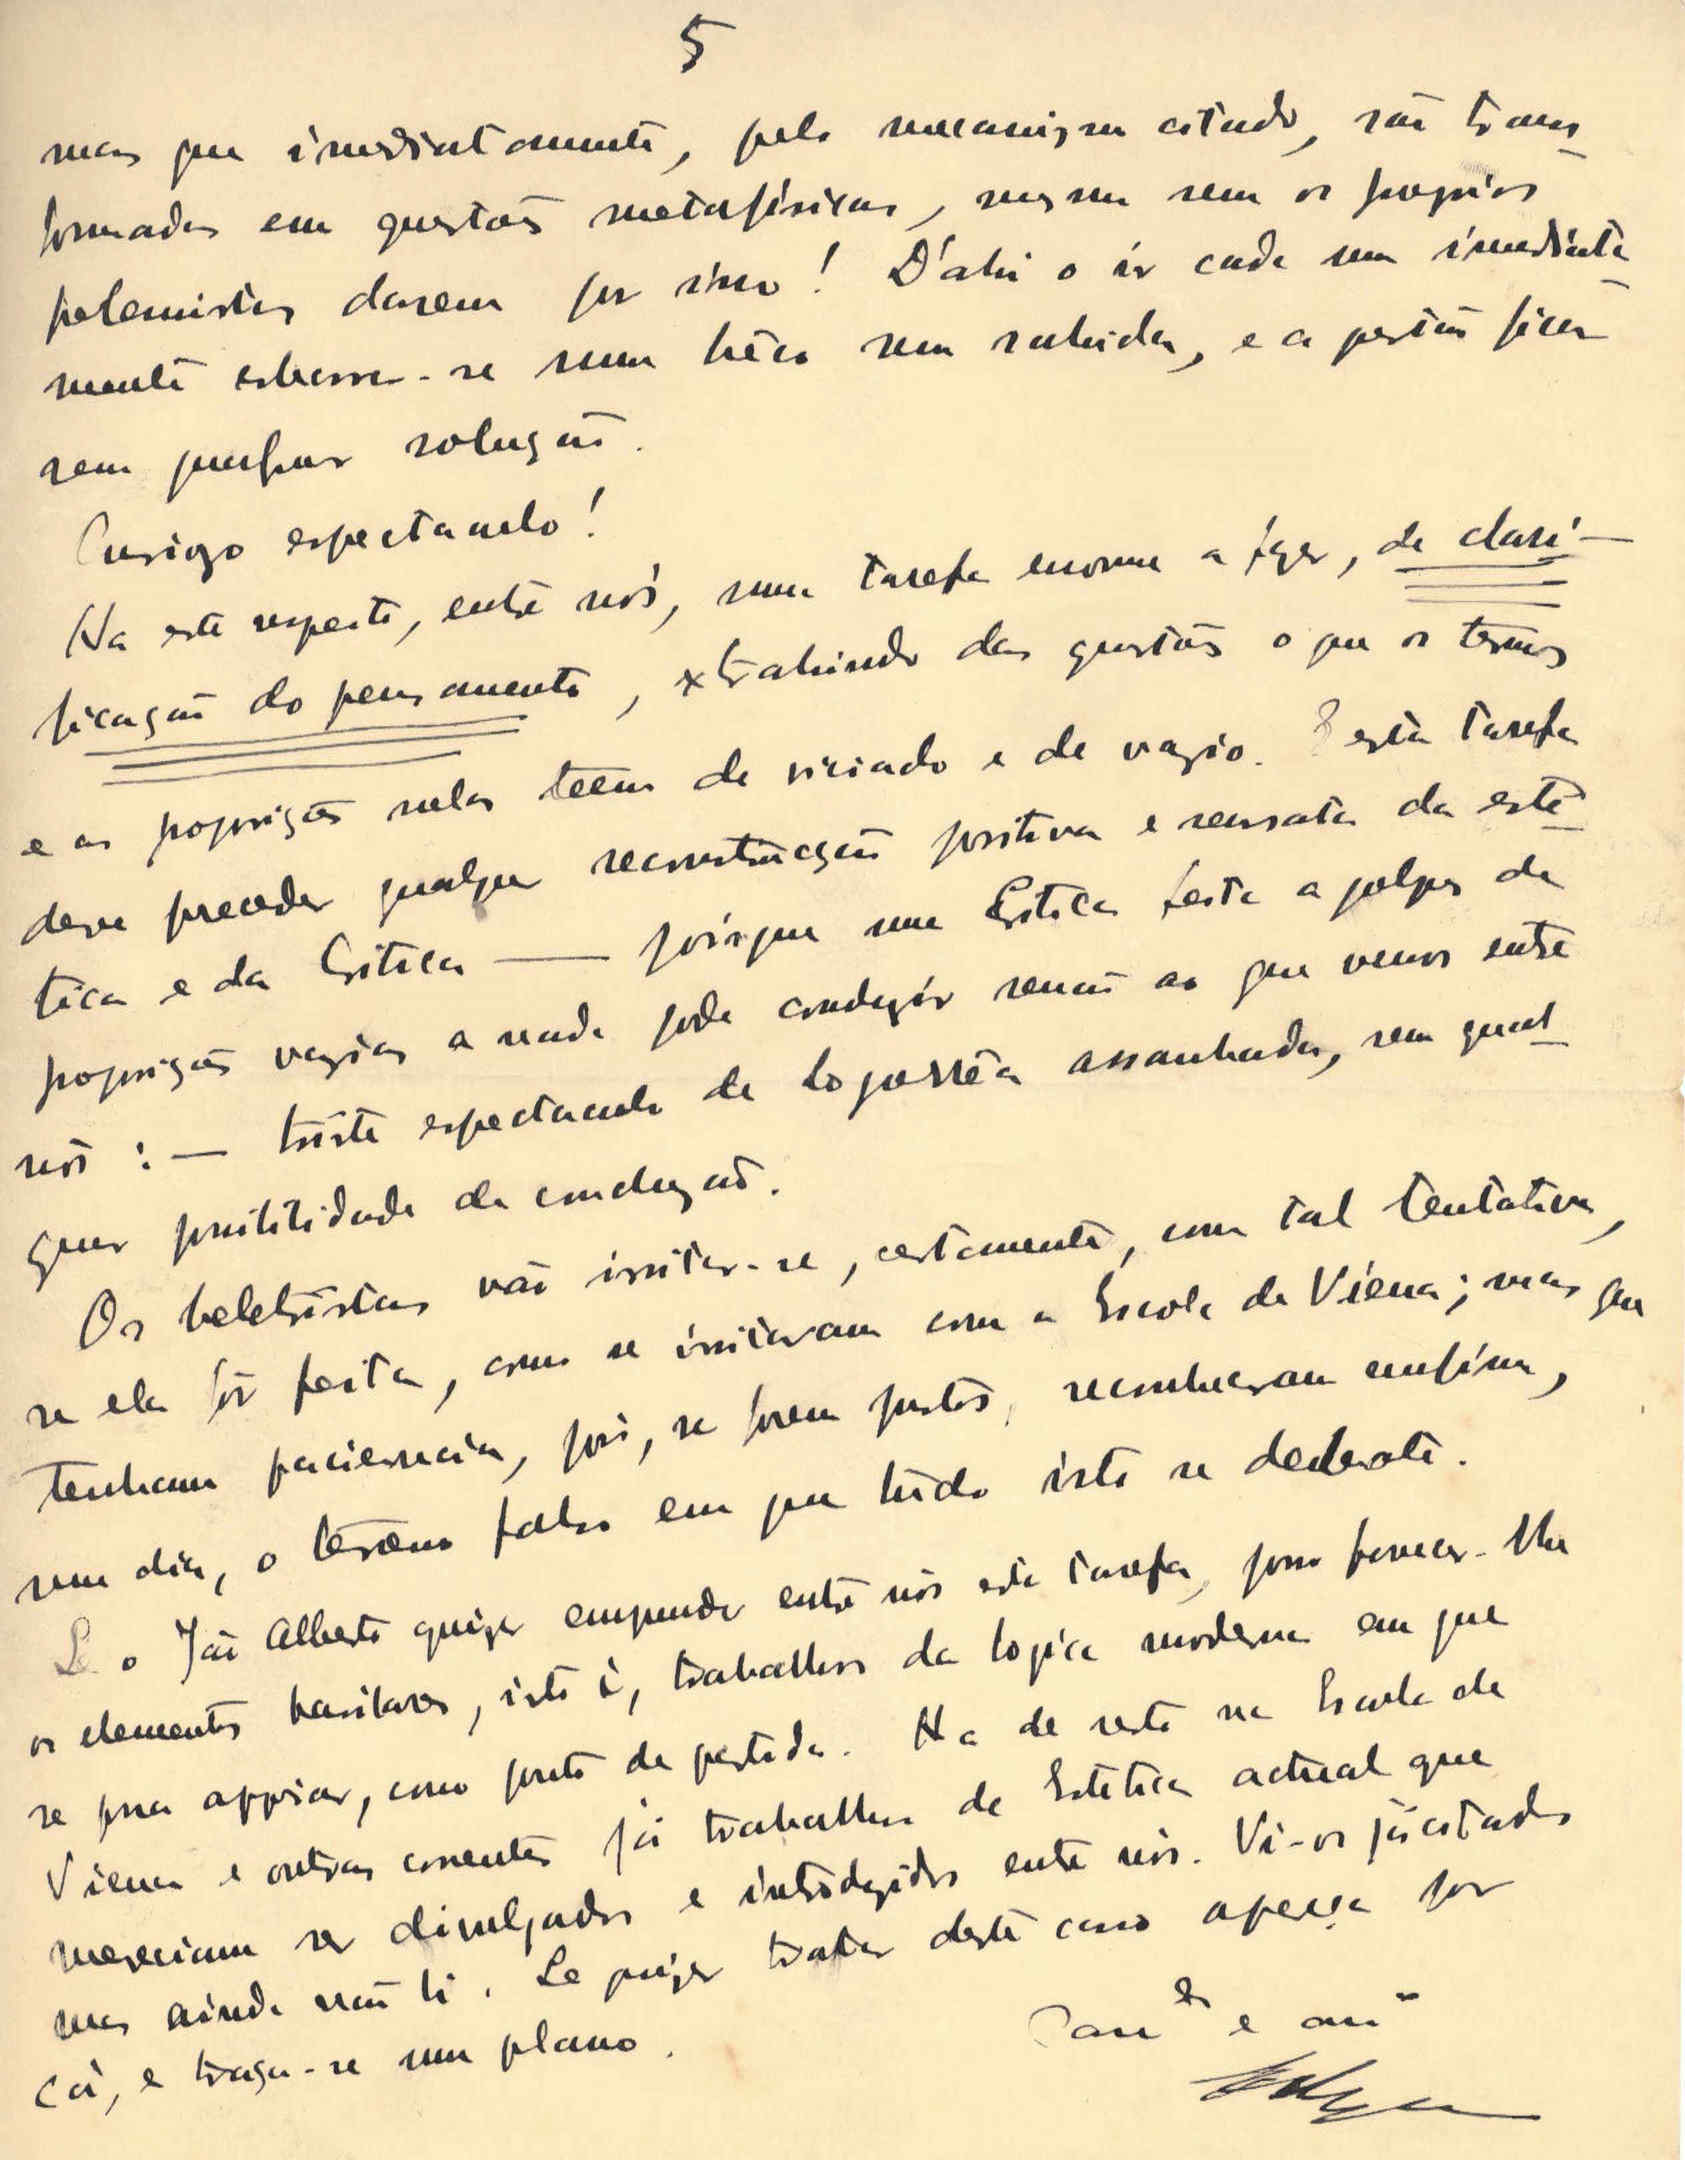 5
mas que imediatamente, pelo mecanismo citado, são trans-
formadas em questões metafísicas, mesmo sem os proprios
polemistas darem por isso! D'ahi o ir cada um imediata-
mente esbarrar-se num bêco sem sahida, e a questão ficar
sem qualquer solução.
Curioso espectaculo!
Ha este respeito, entre nós, uma tarefa enorme a fazer, de clari-
ficação do pensamento, extrahindo das questões o que os termos
e as proposições nelas teem de viciado e de vazio. E esta tarefa
deve preceder qualquer reconstrução positiva e sensata da esté-
tica e da Critica — pois que uma Critica feita a golpes de
proposições vazias a nada pode conduzir senão ao que vemos entre
nós: — triste espectaculo de logorrêa assanhada, sem qual-
quer possibilidade de conclusão.
Os beletristas vão irritar-se, certamente, com tal tentativa,
se ela fôr feita, como se irritaram com a Escola de Viena; mas que
tenham paciencia, pois, se forem justos, reconheceram emfim,
um dia, o terreno falso em que tudo isto se debate.
Se o João Alberto quizer empreender entre nós esta tarefa, posso fornecer-lhe
os elementos basilares, isto é, trabalhos da logica moderna em que
se possa appoiar, como ponto de partida. Ha de resto na Escola de
Viena e outras correntes já trabalhos de Estética actual que
mereciam ser divulgados e introduzidos entre nós. Vi-os já citados
mas ainda não li. Se quizer tratar deste caso apareça por
cá, e traça-se um plano.
Cam<sup>da</sup> e am<sup>o</sup>